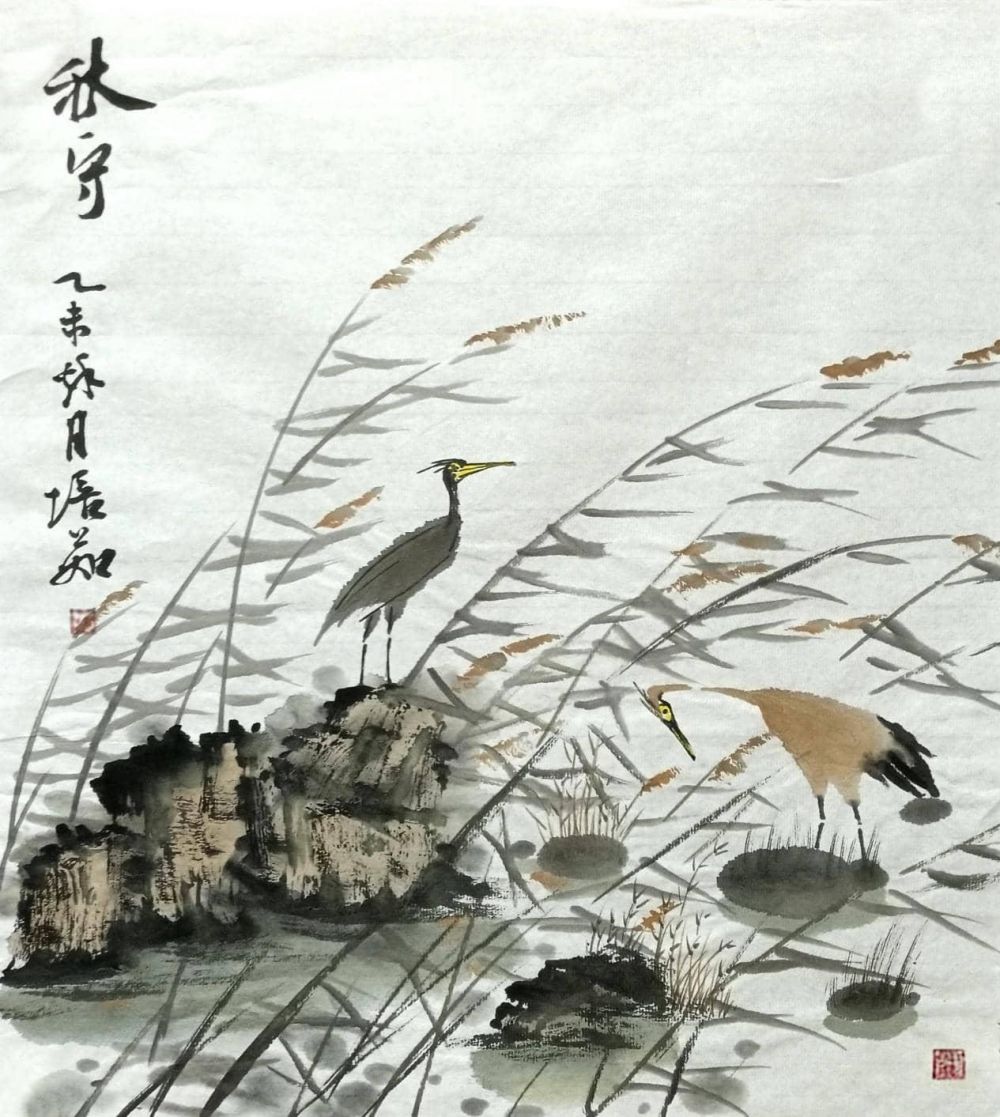 秋守
乙未秋月培茹